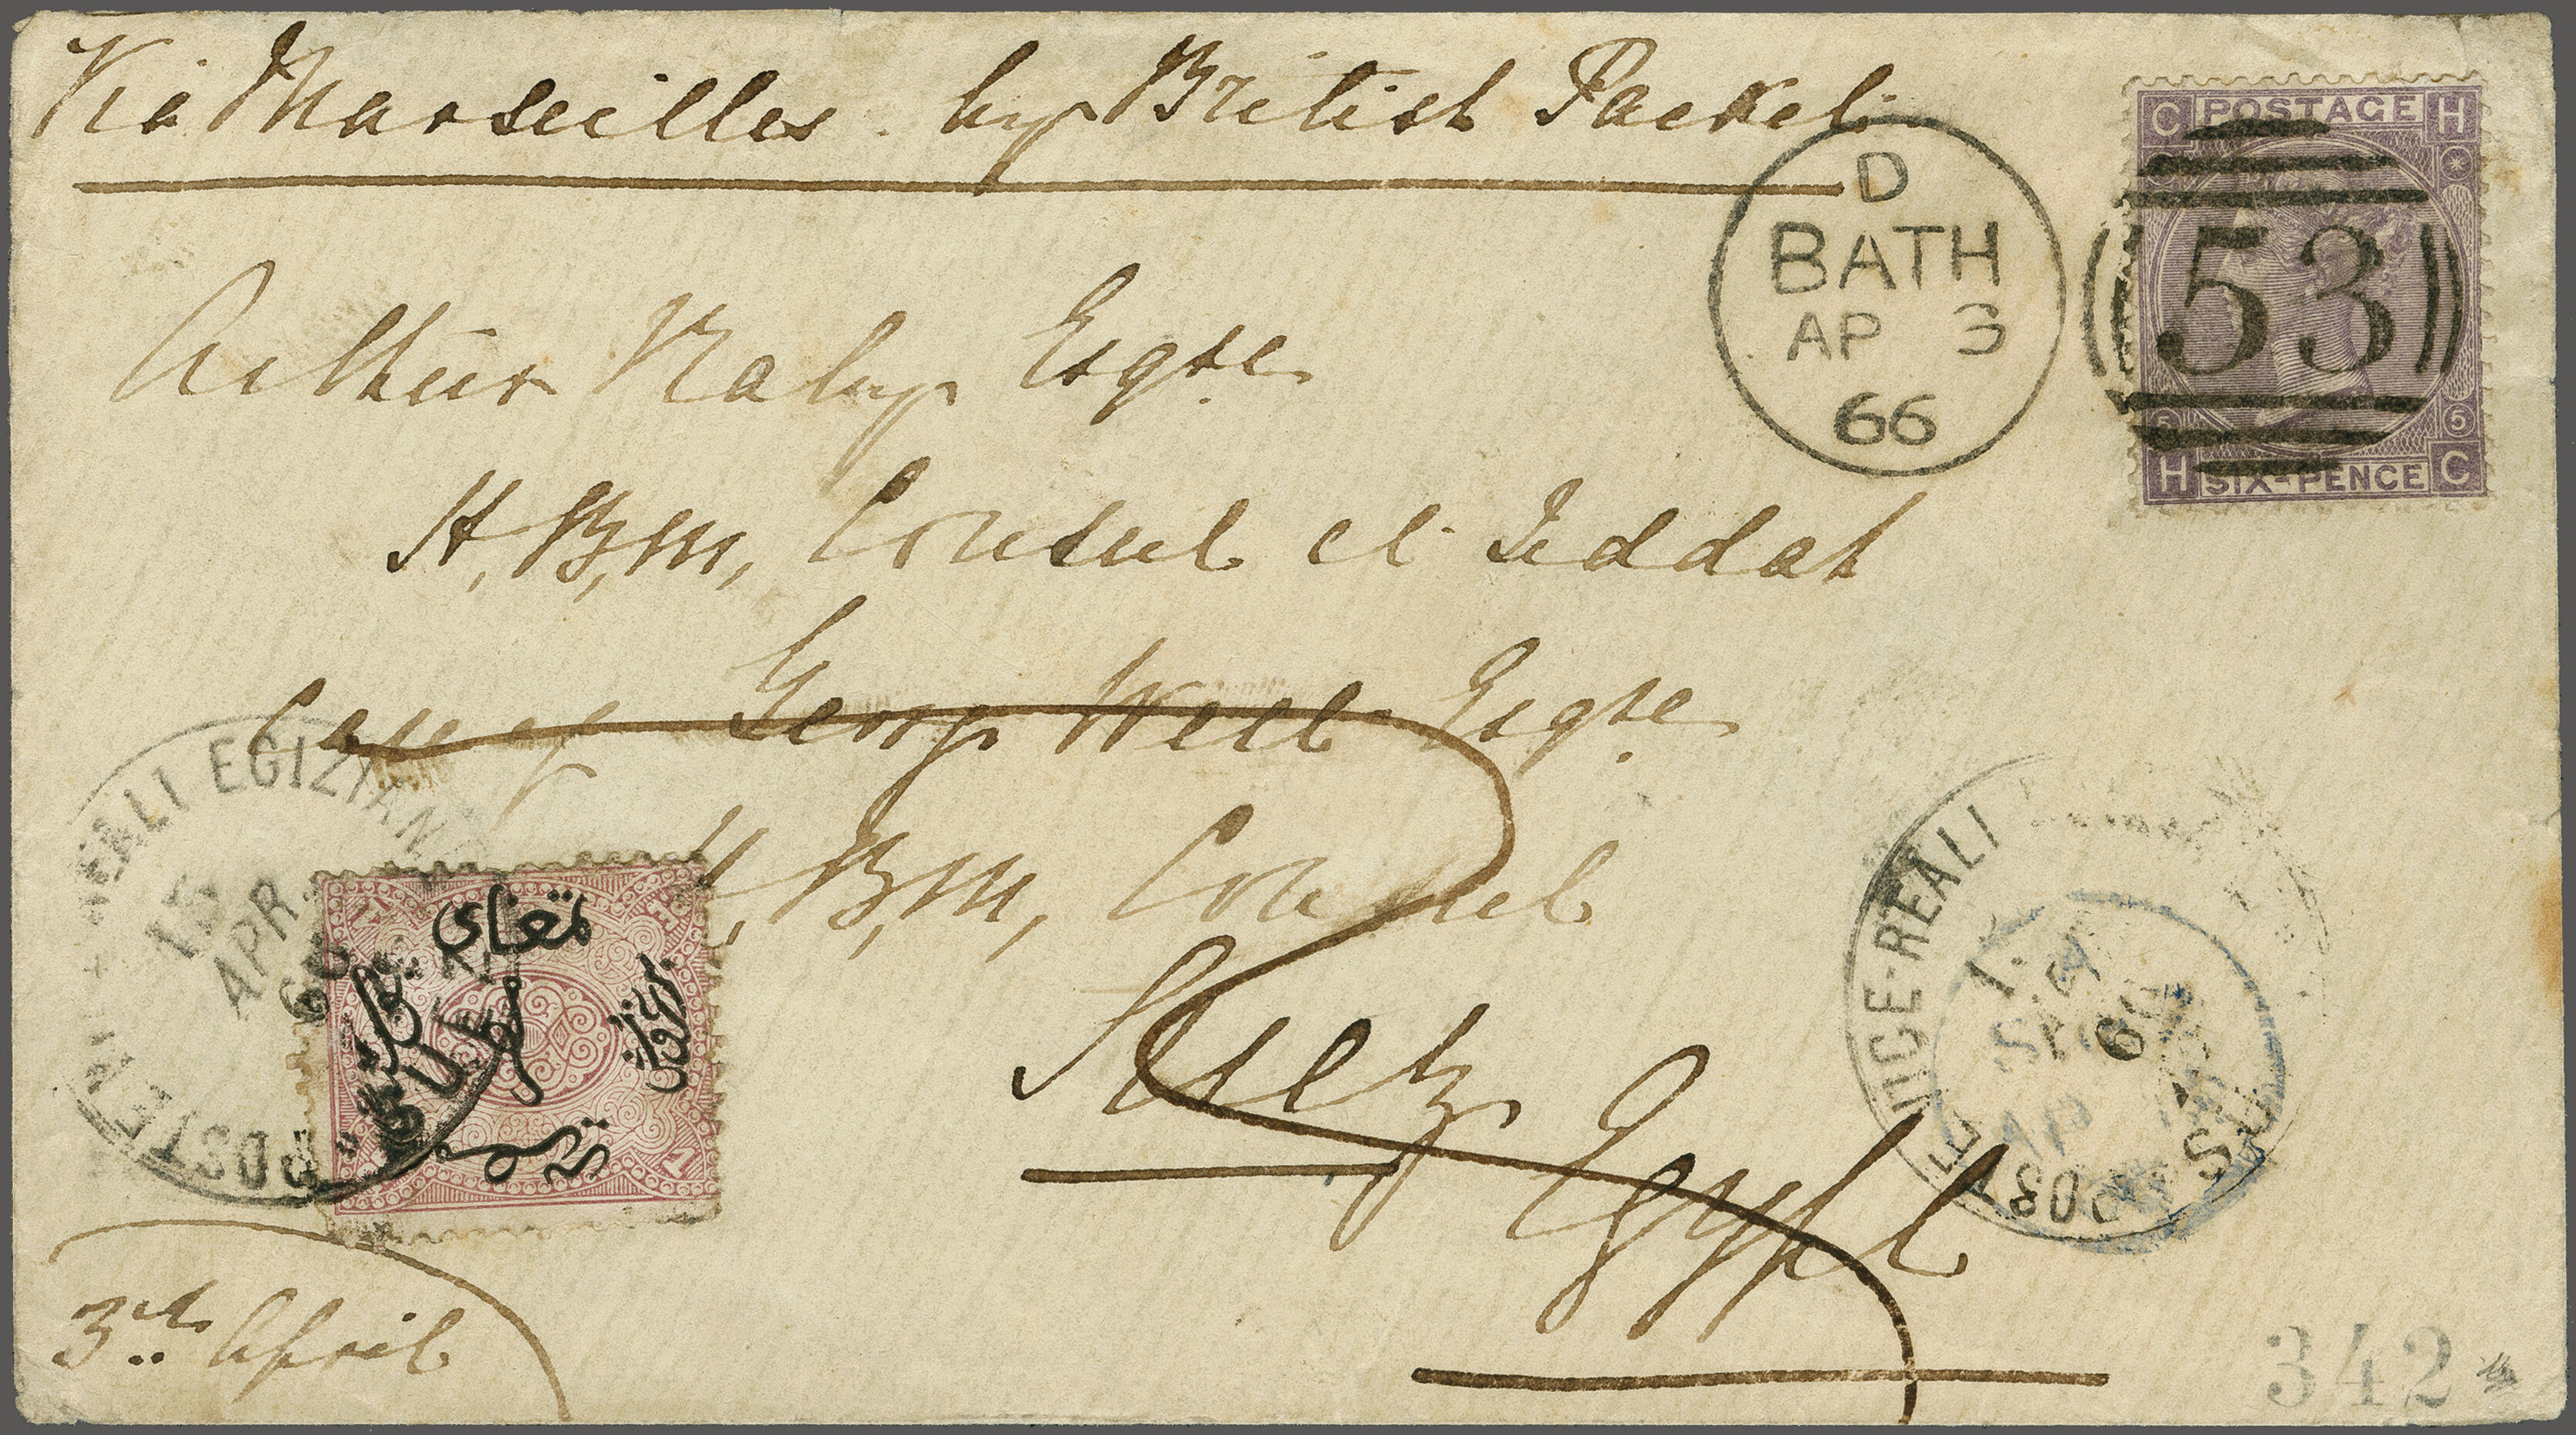 Via Marseilles. by British Packet
D
BATH
AP 3
66
C POSTAGE H
53
5 5
H SIX-PENCE C
Arthur Raby Esqre
H, B, M, Consul at Jeddah
Care of George West Esqre
H, B, M, Consul
Suez
Egypt
REALI EGIZIANE
15
APR
66
POSTE
REALI
POSTE
SU
3rd April
342